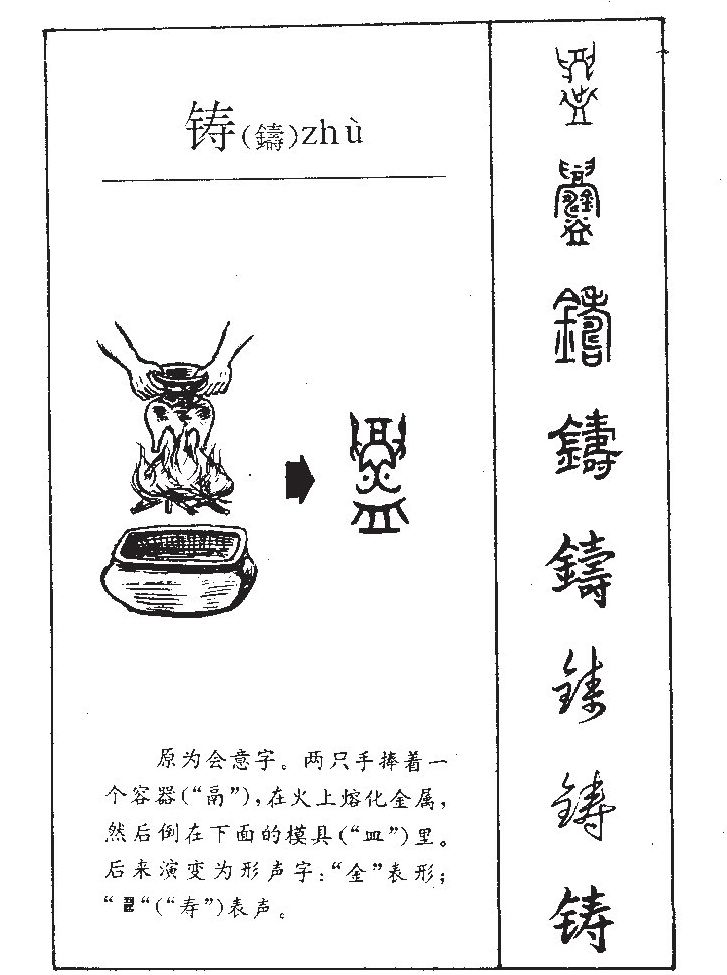 铸(鑄)zhù
原为会意字。两只手捧着一
个容器(“鬲”),在火上熔化金属,
然后倒在下面的模具(“皿”)里。
后来演变为形声字:“金”表形;
“ “(“寿”)表声。
鑄
鑄
鑄
铸
铸
铸